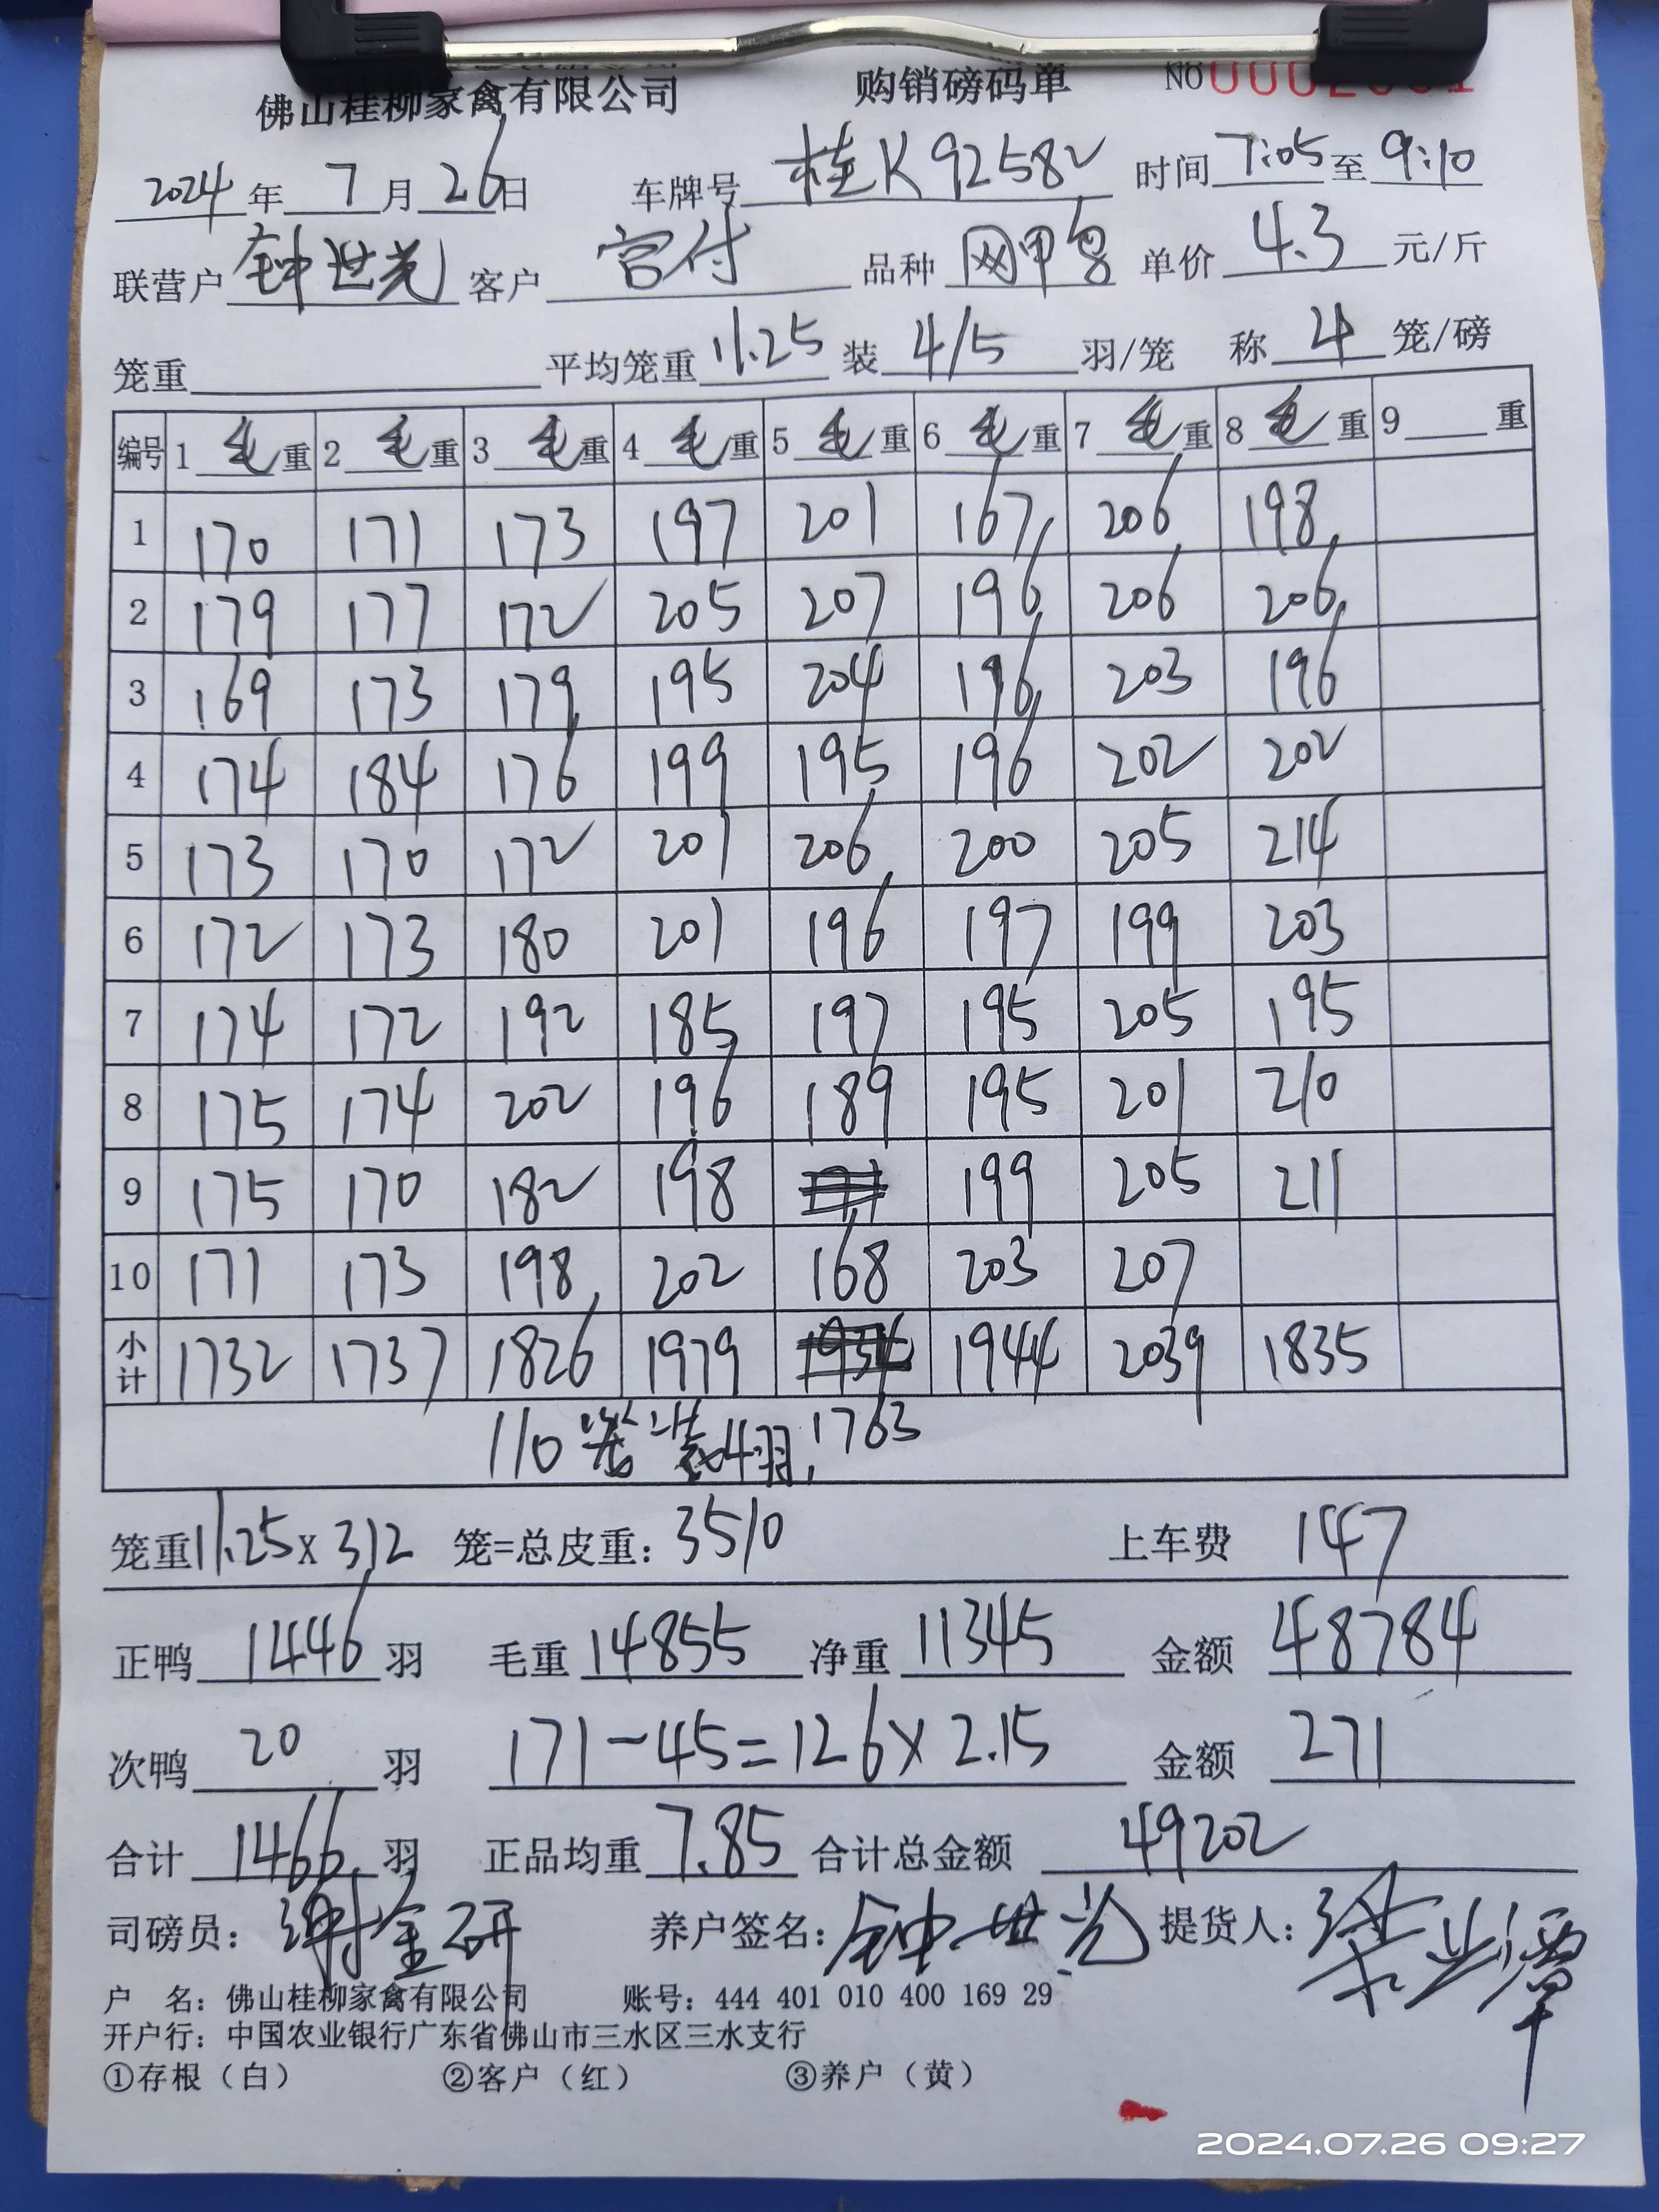 佛山桂柳家禽有限公司 购销磅码单 No
2024年7月26日 车牌号 桂K92582 时间 7:05 至 9:10
联营户 钟世光 客户 宫付 品种 网甲 单价 4.3 元/斤
笼重 平均笼重 11.25 装 4/5 羽/笼 称 4 笼/磅
编号 1 毛 重 2 毛 重 3 毛 重 4 毛 重 5 毛 重 6 毛 重 7 毛 重 8 毛 重 9 重
1 170 171 173 197 201 167 206 198
2 179 177 172 205 207 196 206 206
3 169 173 179 195 204 196 203 196
4 174 184 176 199 195 196 202 202
5 173 170 172 201 206 200 205 214
6 172 173 180 201 196 197 199 203
7 174 172 192 185 197 195 205 195
8 175 174 202 196 189 195 201 210
9 175 170 182 198 199 205 211
10 171 173 198 202 168 203 207
小计 1732 1737 1826 1979 1944 2039 1835
110笼装4羽, 1763
笼重 11.25 x 312 笼=总皮重: 3510 上车费 147
正鸭 1446 羽 毛重 14855 净重 11345 金额 48784
次鸭 20 羽 171-45=126×2.15 金额 271
合计 1466 羽 正品均重 7.85 合计总金额 49202
司磅员: 谢金研 养户签名: 钟世光 提货人:
户 名: 佛山桂柳家禽有限公司 账号: 444 401 010 400 169 29
开户行: 中国农业银行广东省佛山市三水区三水支行
①存根（白） ②客户（红） ③养户（黄）
2024.07.26 09:27